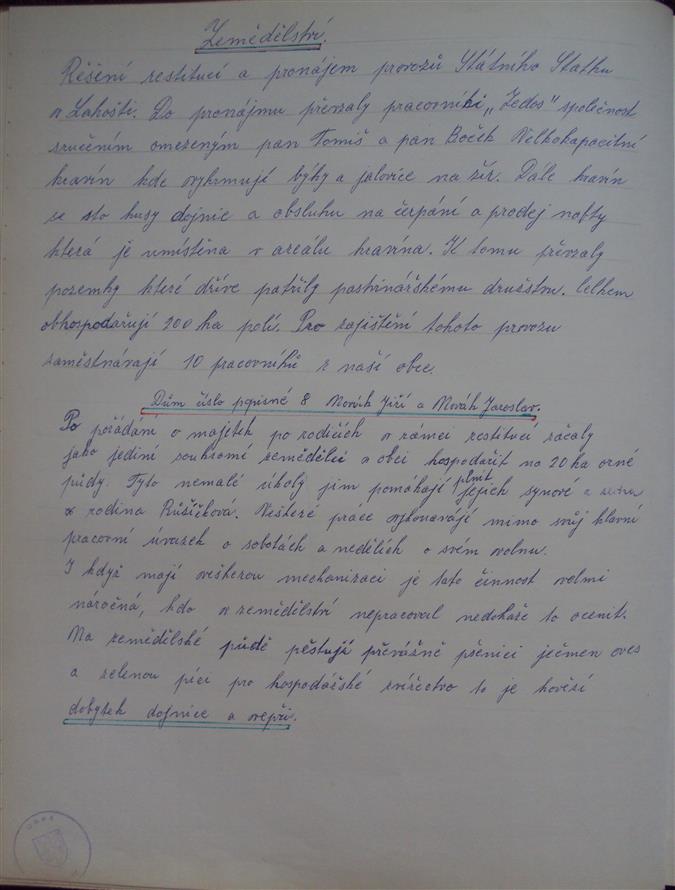 Zemědělství.
Řěšení restitucí a pronájem provozů Státního Statku
v Lahošti. Do pronájmu převzaly pracovníki „Zedos" společnost
sručením omezeným pan Tomiš a pan Boček Velkokapacitní
kravín kde vykrmují býky a jalovice na žír. Dále kravín
se sto kusy dojnic a obsluhu na čerpání a prodej nafty
která je umístěna v areálu kravína. K tomu převzaly
pozemky které dříve patřily pastvinářskému družstvu. Celkem
obhospodařují 200 ha polí. Pro zajištění tohoto provozu
zaměstnávají 10 pracovníků z naší obce.
Dům číslo popisné 8 Novák Jiří a Novák Jaroslav.
Po požádání o majetek po rodičích v rámci restitucí začaly
jako jediní soukromí zemědělci v obci hospodařit na 20 ha orné
půdy. Tyto nemalé úkoly jim pomáhají plnit jejich synové a sestra
s rodina Růšičková. Veškeré práce vykonavájí mimo svůj hlavní
pracovní úvazek o sobotách a nedělích o svém volnu.
I když mají veškerou mechanizaci je tato činnost velmi
náročná, kdo v zemědělství nepracoval nedokaže to ocenit.
Na zemědělské půdě pěstují převážně pšenici ječmen oves
a zelenou píci pro hospodářské zvířectvo to je hovězí
dobytek dojnice a vepři.